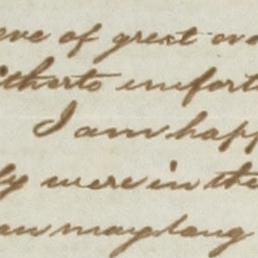 eve of great ove
itherto unfort
I am happ
ly were in the
an may lang